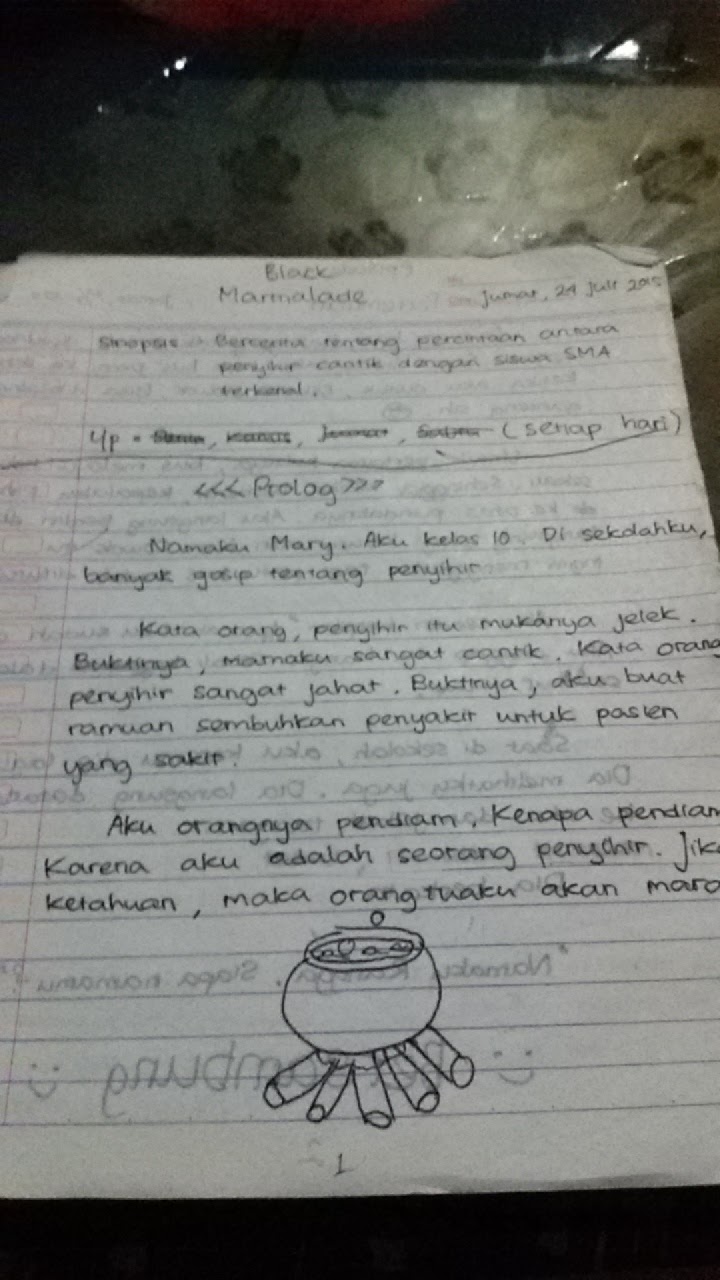 Black
Marmalade
Jumat, 24 Juli 2015
Sinopsis : Bercerita tentang percintaan antara
penyihir cantik dengan siswa SMA
terkenal.
Up = Senin, Kamis, Jumat, Sabtu (setiap hari)
<<< Prolog >>>
Namaku Mary. Aku kelas 10. Di sekolahku,
banyak gosip tentang penyihir.
Kata orang, penyihir itu mukanya jelek.
Buktinya, mamaku sangat cantik. Kata orang
penyihir sangat jahat. Buktinya, aku buat
ramuan sembuhkan penyakit untuk pasien
yang sakit.
Aku orangnya pendiam. Kenapa pendiam
Karena aku adalah seorang penyihir. Jika
ketahuan, maka orangtuaku akan mara
1